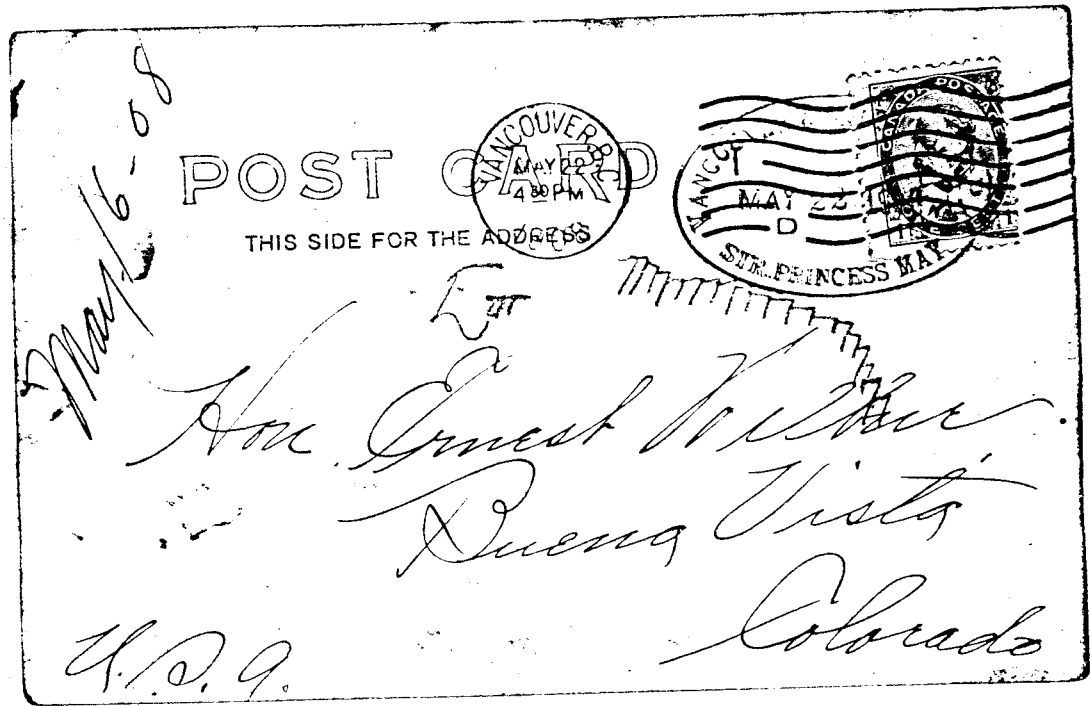 May 16-08
POST CARD
THIS SIDE FOR THE ADDRESS
VANCOUVER, B.C.
MAY 22
4 30 PM
1908
MAY 22
D
STR. PRINCESS MAY
CANADA POSTAGE
Hon. Ernest Wilber
Buena Vista
Colorado
U.S.A.